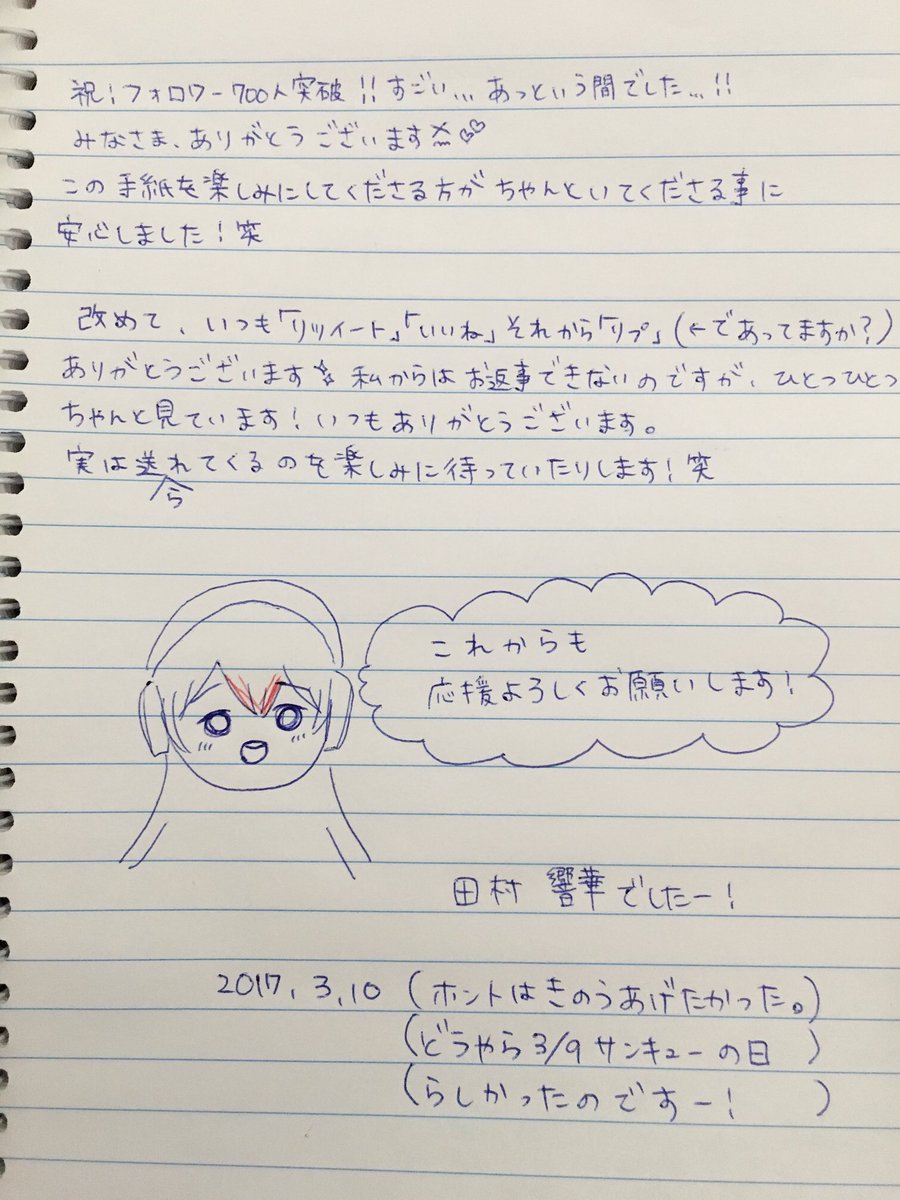 祝!フォロワー700人突破!!すごい...あっという間でした...!!
みなさま、ありがとうございます
この手紙を楽しみにしてくださる方がちゃんといてくださる事に
安心しました!笑
改めて、いつも「リツイート」「いいね」それから「リプ」(←であってますか?)
ありがとうございます 私からはお返事できないのですが、ひとつひとつ
ちゃんと見ています!いつもありがとうございます。
実は送られてくるのを楽しみに待っていたりします!笑
これからも
応援よろしくお願いします!
田村 響華でしたー!
2017.3.10(ホントはきのうあげたかった。)
(どうやら3/9サンキューの日)
(らしかったのですー!)